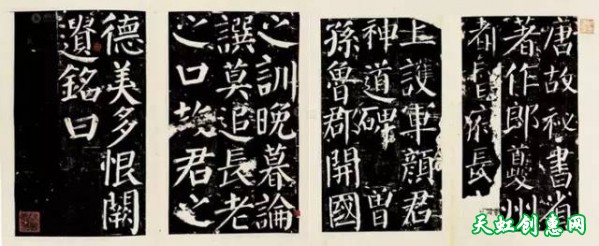 唐故祕書省
著作郎夔州
都督府長
上護軍顏君
神道碑 曾
孫魯郡開國
之訓晚暮論
譔莫追長老
之口故君之
德美多恨闕
遺銘曰
天虹创意网